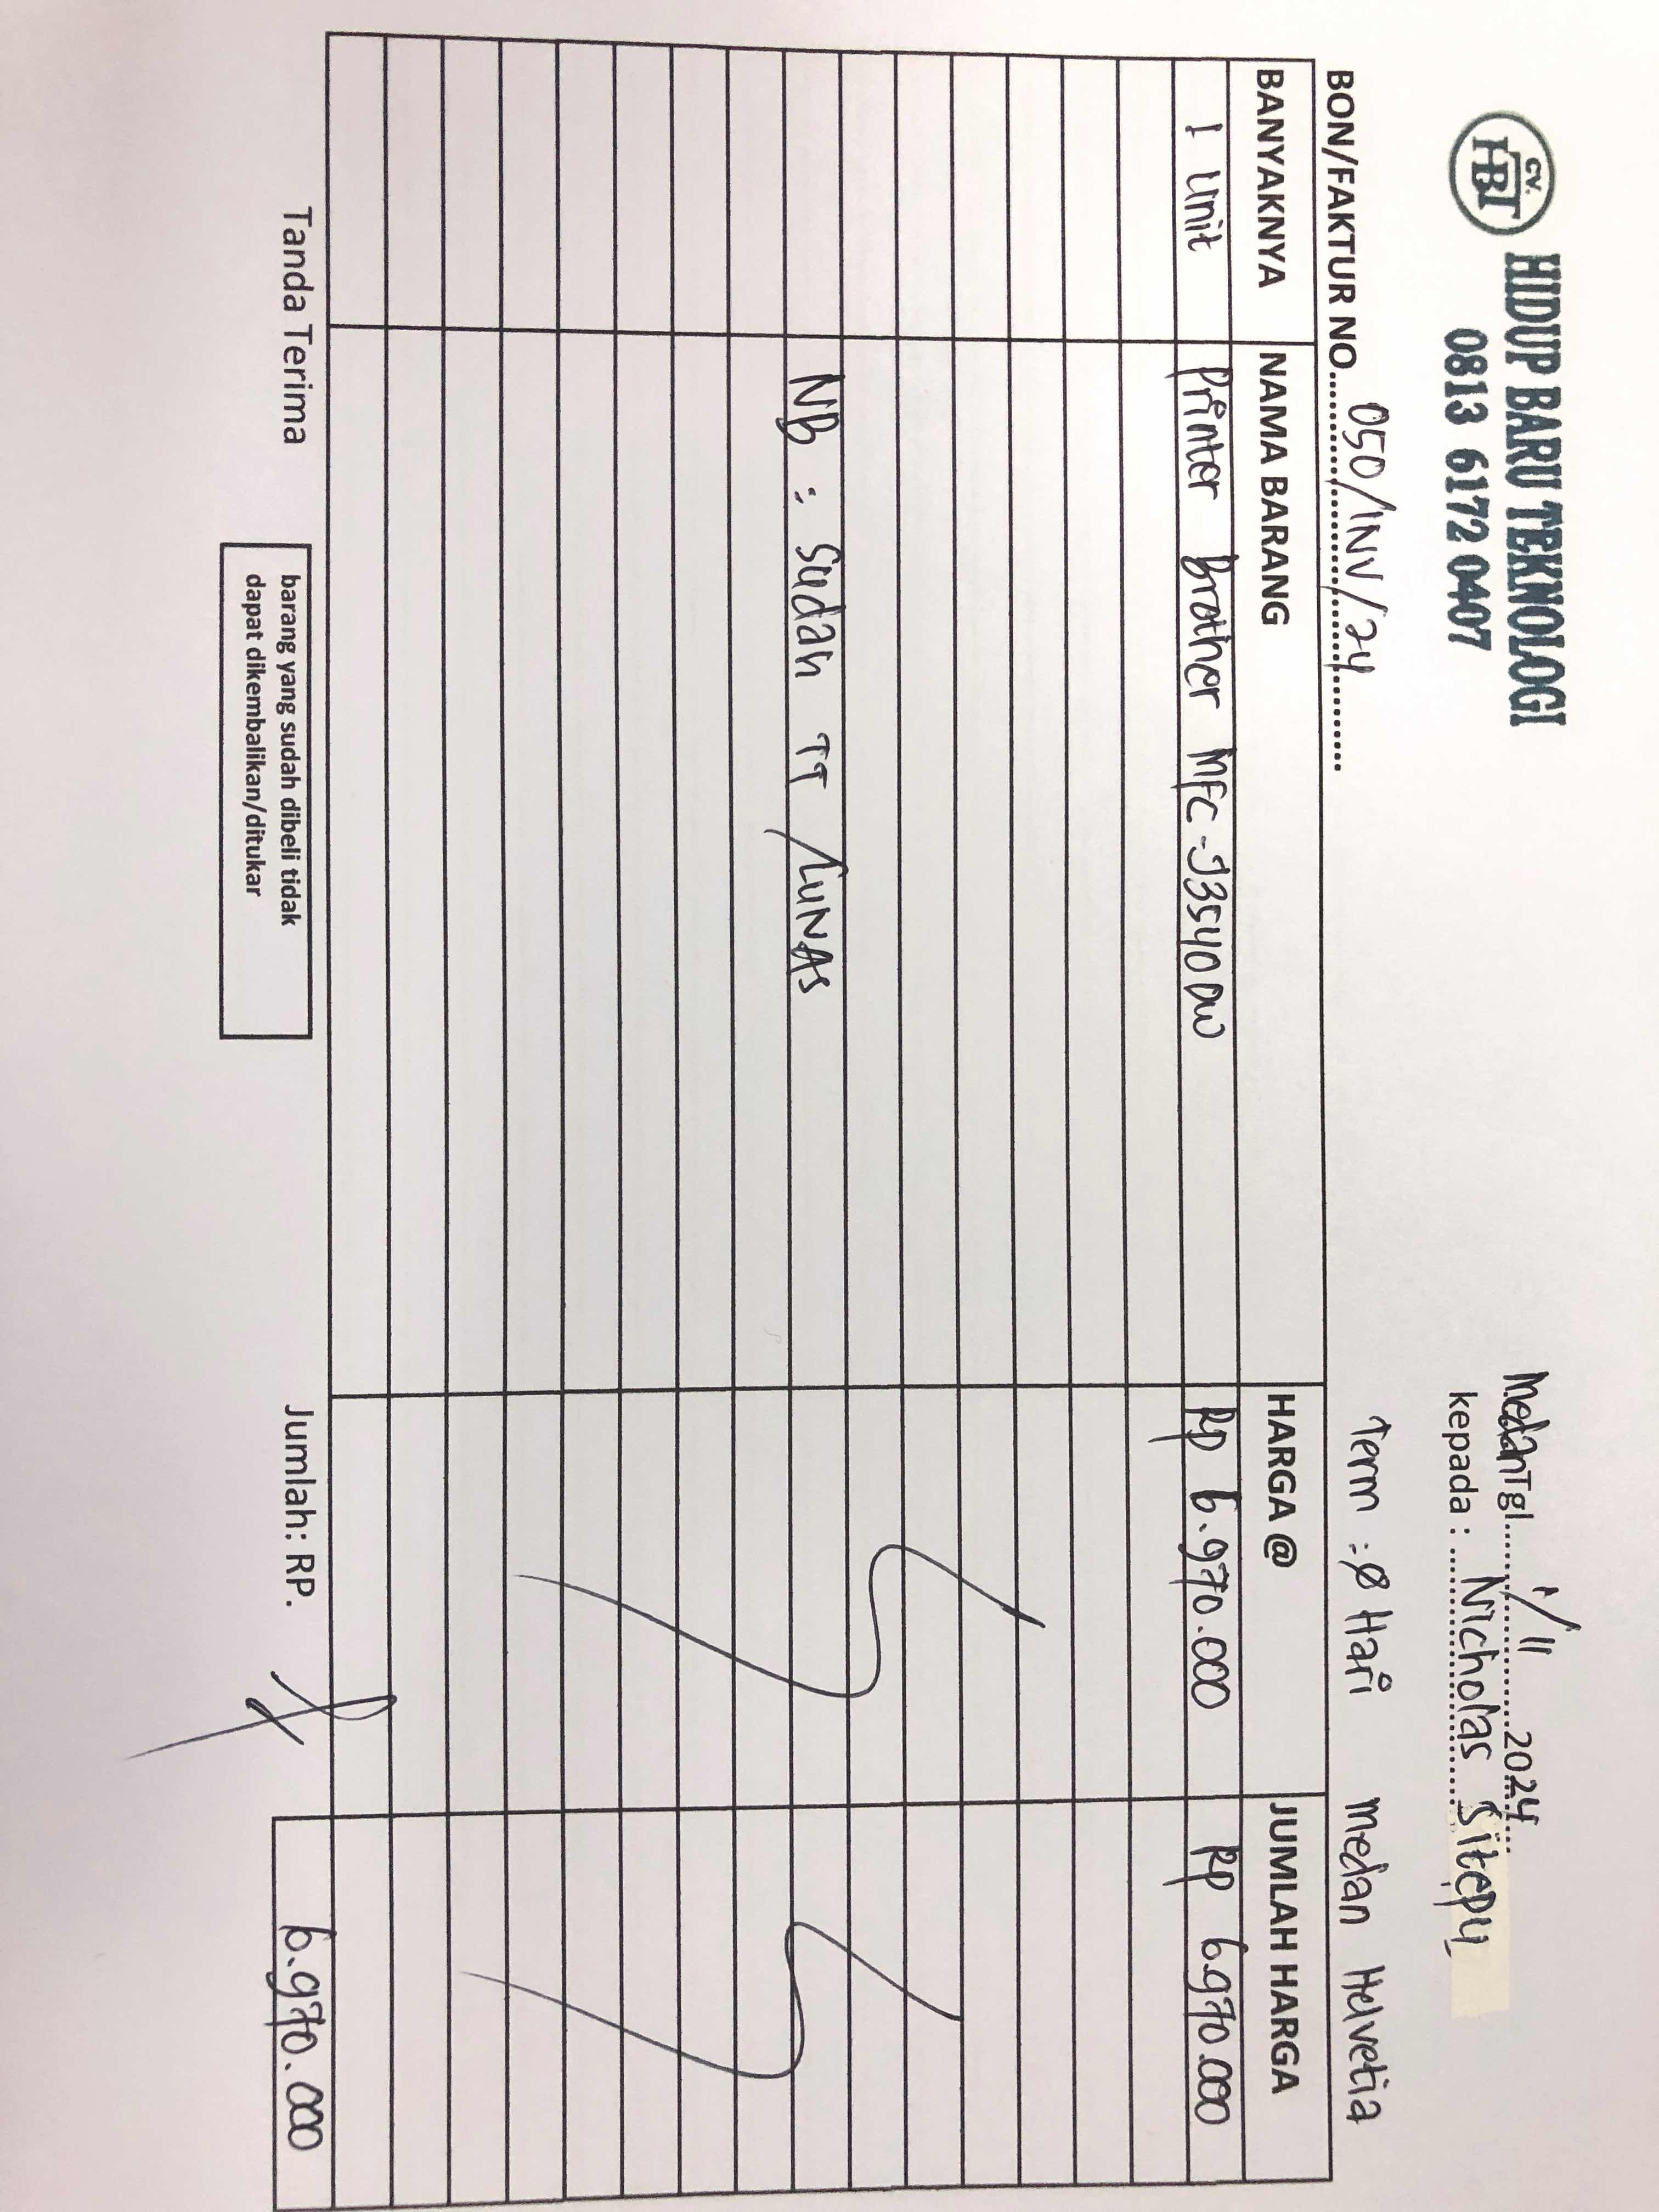 CV.
HBT
HIDUP BARU TEKNOLOGI
0813 6172 0407
Medan Tgl. 1/11 2024
kepada : Nicholas Sitepu
BON/FAKTUR NO. 050/INV/24
Term : Ø Hari Medan Helvetia
BANYAKNYA NAMA BARANG HARGA @ JUMLAH HARGA
1 Unit Printer Brother MFC-J3540DW Rp 6.970.000 Rp 6.970.000
NB : Sudah TT / LUNAS
Tanda Terima Jumlah: RP. 6.970.000
barang yang sudah dibeli tidak
dapat dikembalikan/ditukar